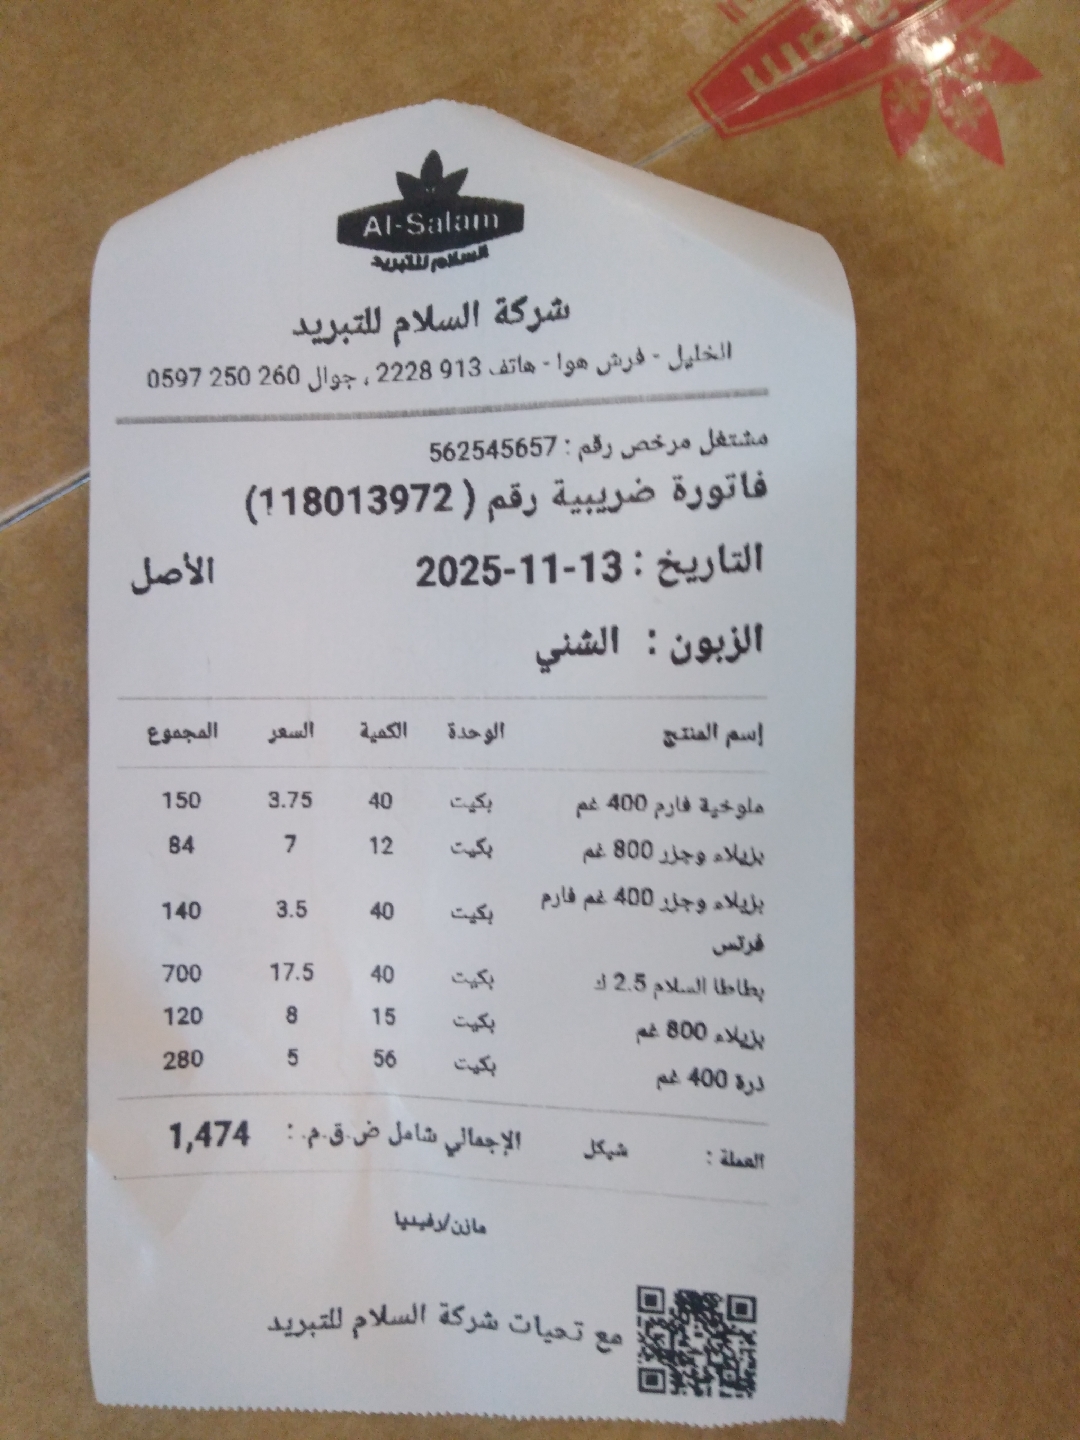 Al-Salam
السلام للتبريد
شركة السلام للتبريد
الخليل - فرش هوا - هاتف 913 2228 ، جوال 260 250 0597
مشتغل مرخص رقم : 562545657
فاتورة ضريبية رقم ( 118013972)
التاريخ : 13-11-2025 الأصل
الزبون : الشني
إسم المنتج الوحدة الكمية السعر المجموع
ملوخية فارم 400 غم بكيت 40 3.75 150
بزيلاء وجزر 800 غم بكيت 12 7 84
بزيلاء وجزر 400 غم فارم بكيت 40 3.5 140
فرتس
بطاطا السلام 2.5 ك بكيت 40 17.5 700
بزيلاء 800 غم بكيت 15 8 120
درة 400 غم بكيت 56 5 280
العملة : شيكل الإجمالي شامل ض.ق.م. : 1,474
مازن/رفيديا
مع تحيات شركة السلام للتبريد